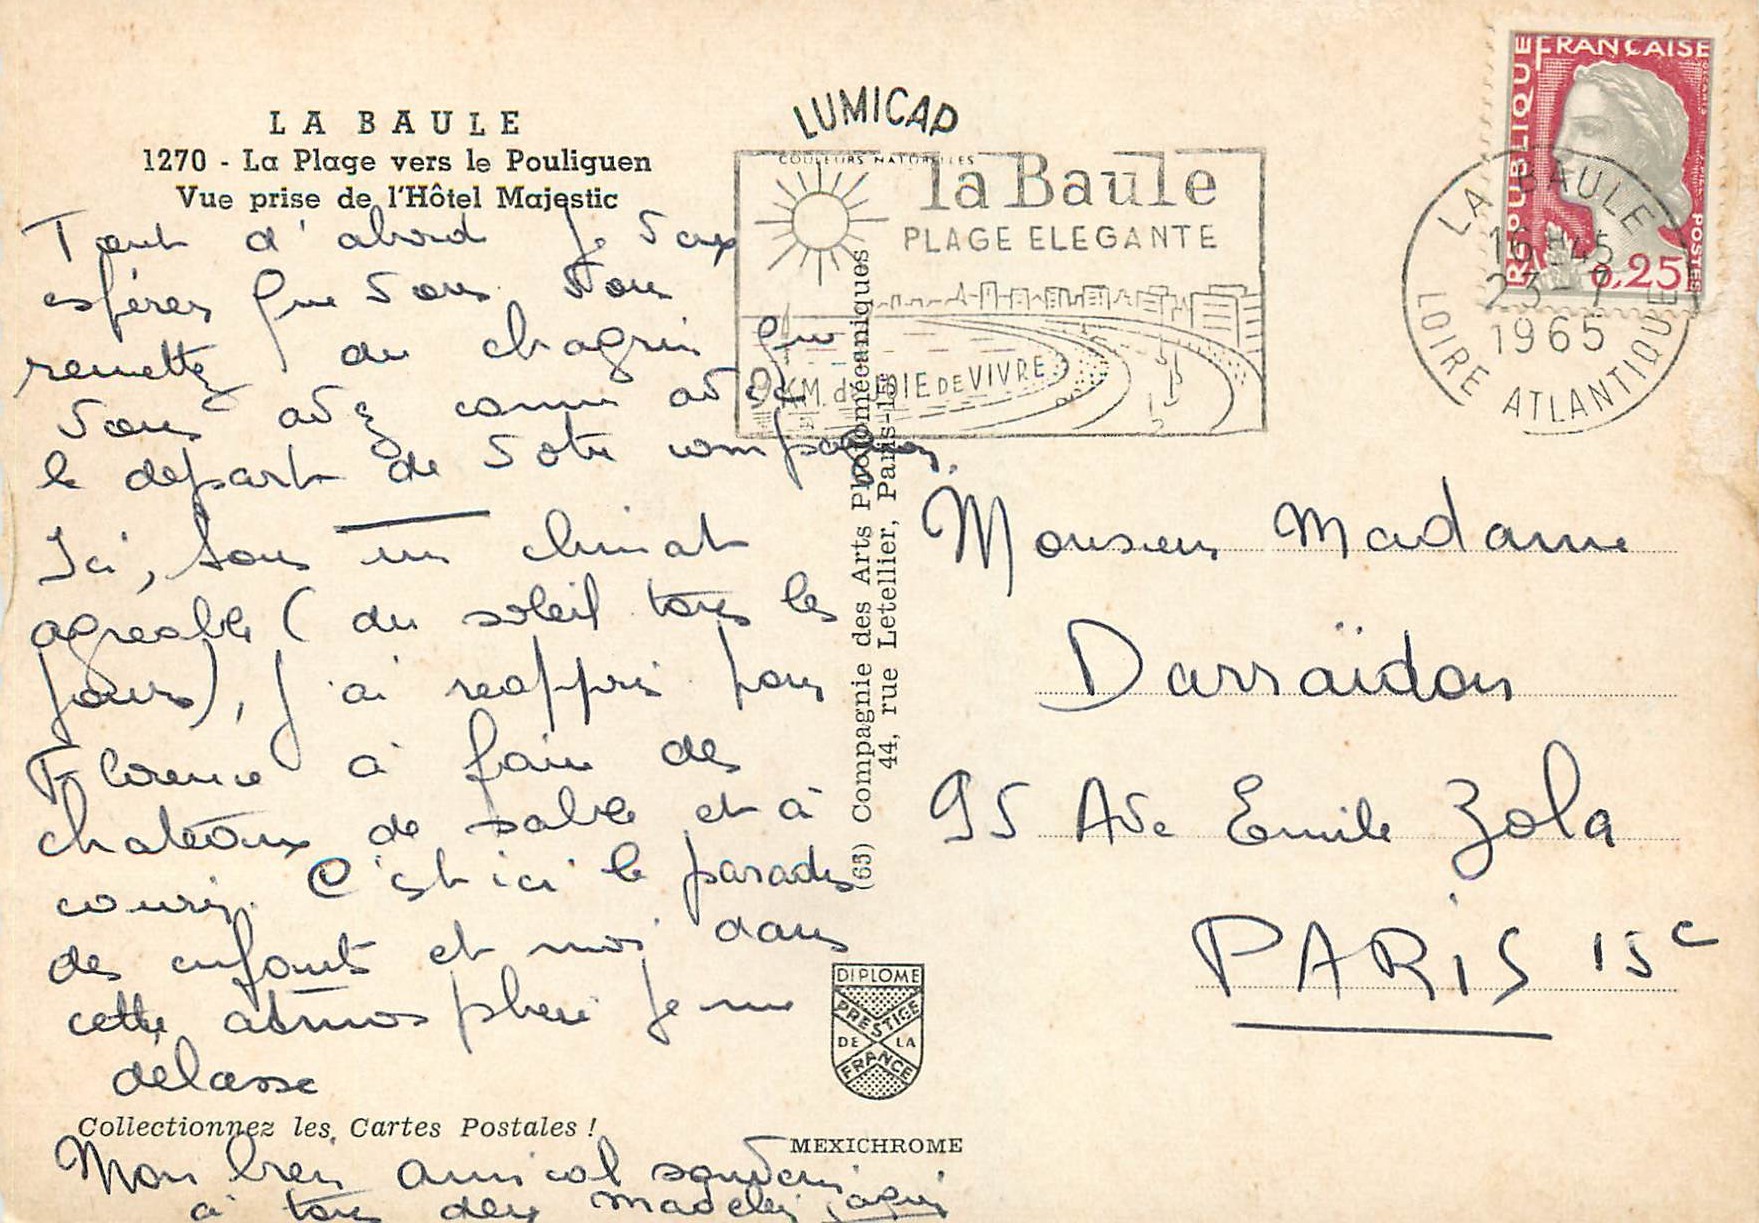 LA BAULE
1270 - La Plage vers le Pouliguen
Vue prise de l'Hôtel Majestic
Tout d'abord je veux
espérer que vous vous
remettez du chagrin que
vous avez connu avec
le départ de votre compagnon.
Ici, sous un climat
agréable (du soleil tous les
jours), j'ai réappris pour
Florence à faire des
chateaux de sable et à
courir. C'est ici le paradis
des enfants et moi dans
cette atmosphère je me
délasse
Collectionnez les Cartes Postales !
Mon bien amical souvenir
à tous deux Madeleine
LUMICAP
COULEURS NATURELLES
la Baule
PLAGE ELEGANTE
9 KM. de JOIE DE VIVRE
(65) Compagnie des Arts Photomécaniques
44, rue Letellier, Paris-15e
DIPLOME
PRESTIGE
DE LA
FRANCE
MEXICHROME
REPUBLIQUE FRANÇAISE
POSTES
0,25
LA BAULE
16H45
23-7
1965
LOIRE ATLANTIQUE
Monsieur Madame
Darraïdou
95 Ave Emile Zola
PARIS 15e